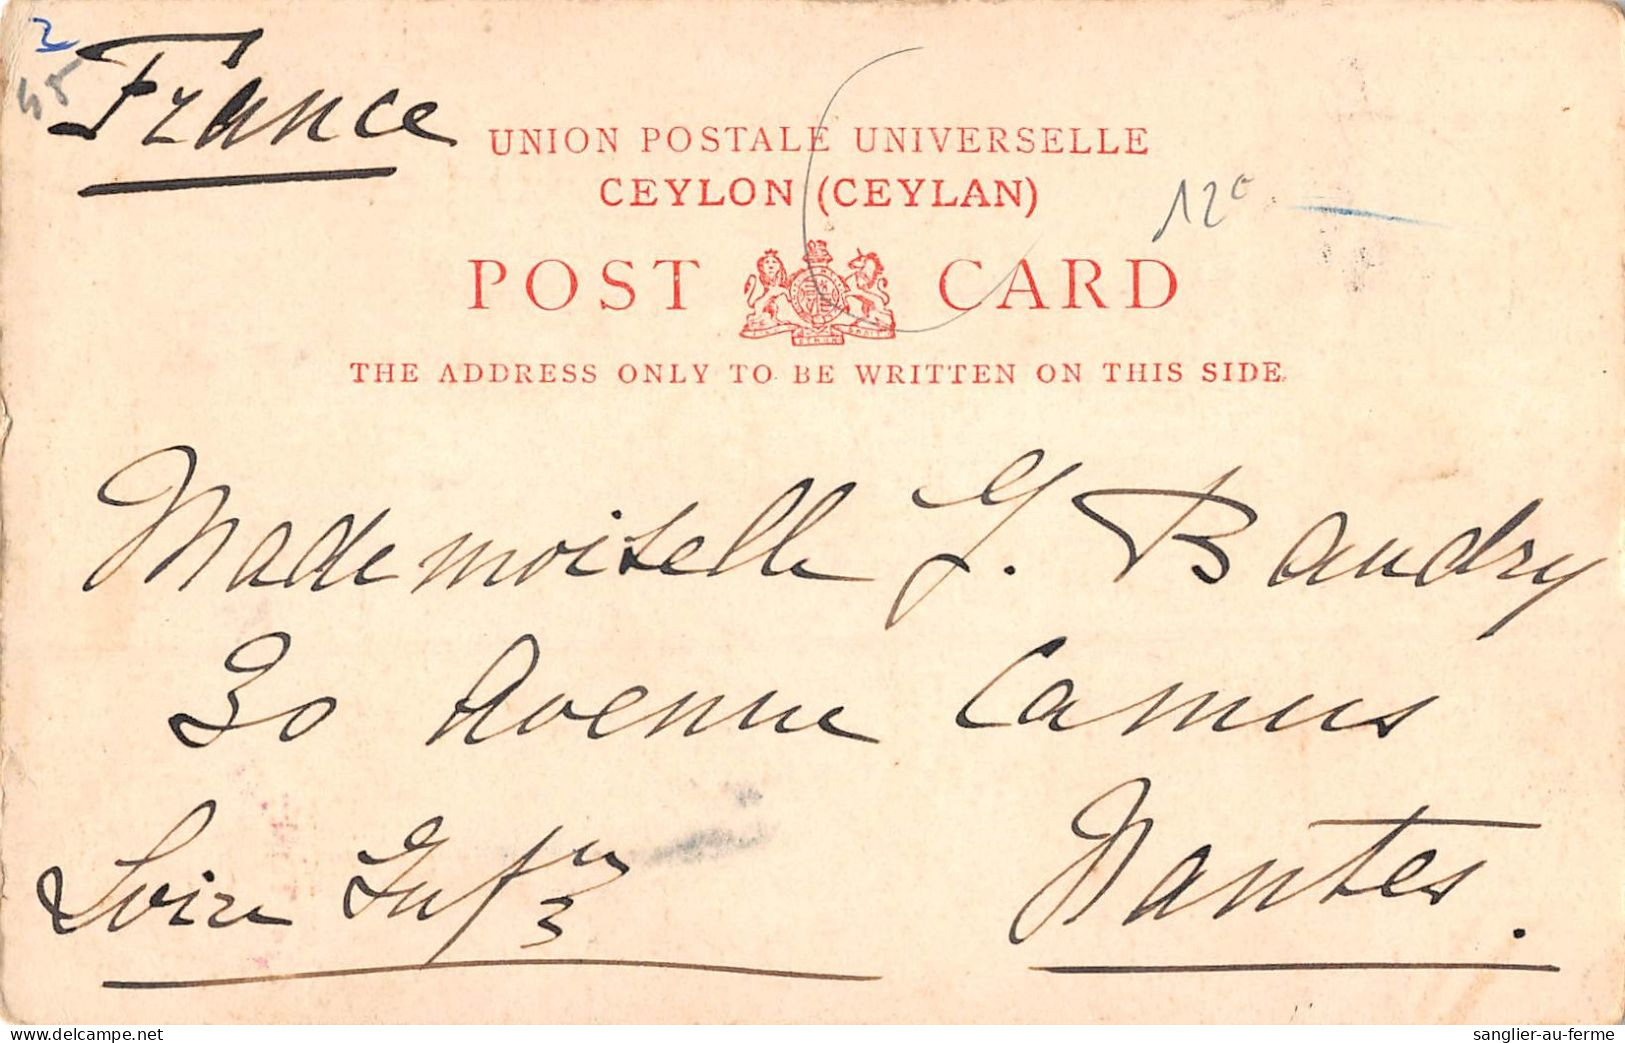 2
45
France
UNION POSTALE UNIVERSELLE
CEYLON (CEYLAN)
12c
POST CARD
THE ADDRESS ONLY TO BE WRITTEN ON THIS SIDE.
Mademoiselle Y. Baudry
30 Avenue Camus
Loire Infre
Nantes.
delcampe.net
sanglier-au-ferme